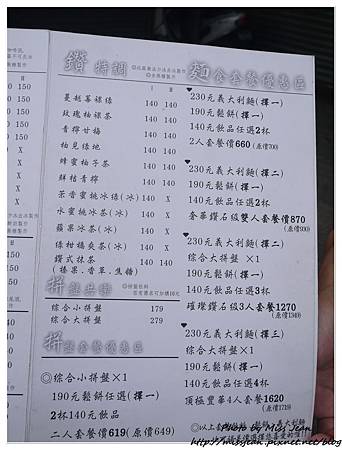 鑽 特調
蔓越莓碟綠 140 140
玫瑰柚碟茶 140 140
青檸甘橘 140 140
柚見綠地 140 140
蜂蜜柚子茶 140 140
鮮桔青檸 140 140
茶香蜜桃冰綠(冰) 140 X
水蜜桃冰茶(冰) 140 X
蘋果冰茶(冰) 140 X
綠柑橘爽茶(冰) 140 X
鑽式抹茶 140 140
(榛果.香草.焦糖)
綜合小拼盤 179
綜合大拼盤 279
拼盤套餐優惠區
◎綜合小拼盤×1
190元鬆餅(擇一)
2杯140元飲品
二人套餐價619(原價649)
麵食套餐優惠區
230元義大利麵(擇一)
190元鬆餅(擇一)
140元飲品任選2杯
2人套餐價660(原價700)
230元義大利麵(擇二)
190元鬆餅(擇一)
140元飲品任選2杯
奢華鑽石級雙人套餐價870
(原價930)
230元義大利麵(擇二)
綜合大拼盤×1
190元鬆餅(擇一)
140元飲品任選3杯
璀璨鑽石級3人套餐1270
(原價1349)
230元義大利麵(擇三)
綜合大拼盤×1
140元飲品任選4杯
頂極豐華4人套餐1620
(原價1729)
Photo by Miss Jean
http://missjean.pixnet.net/blog